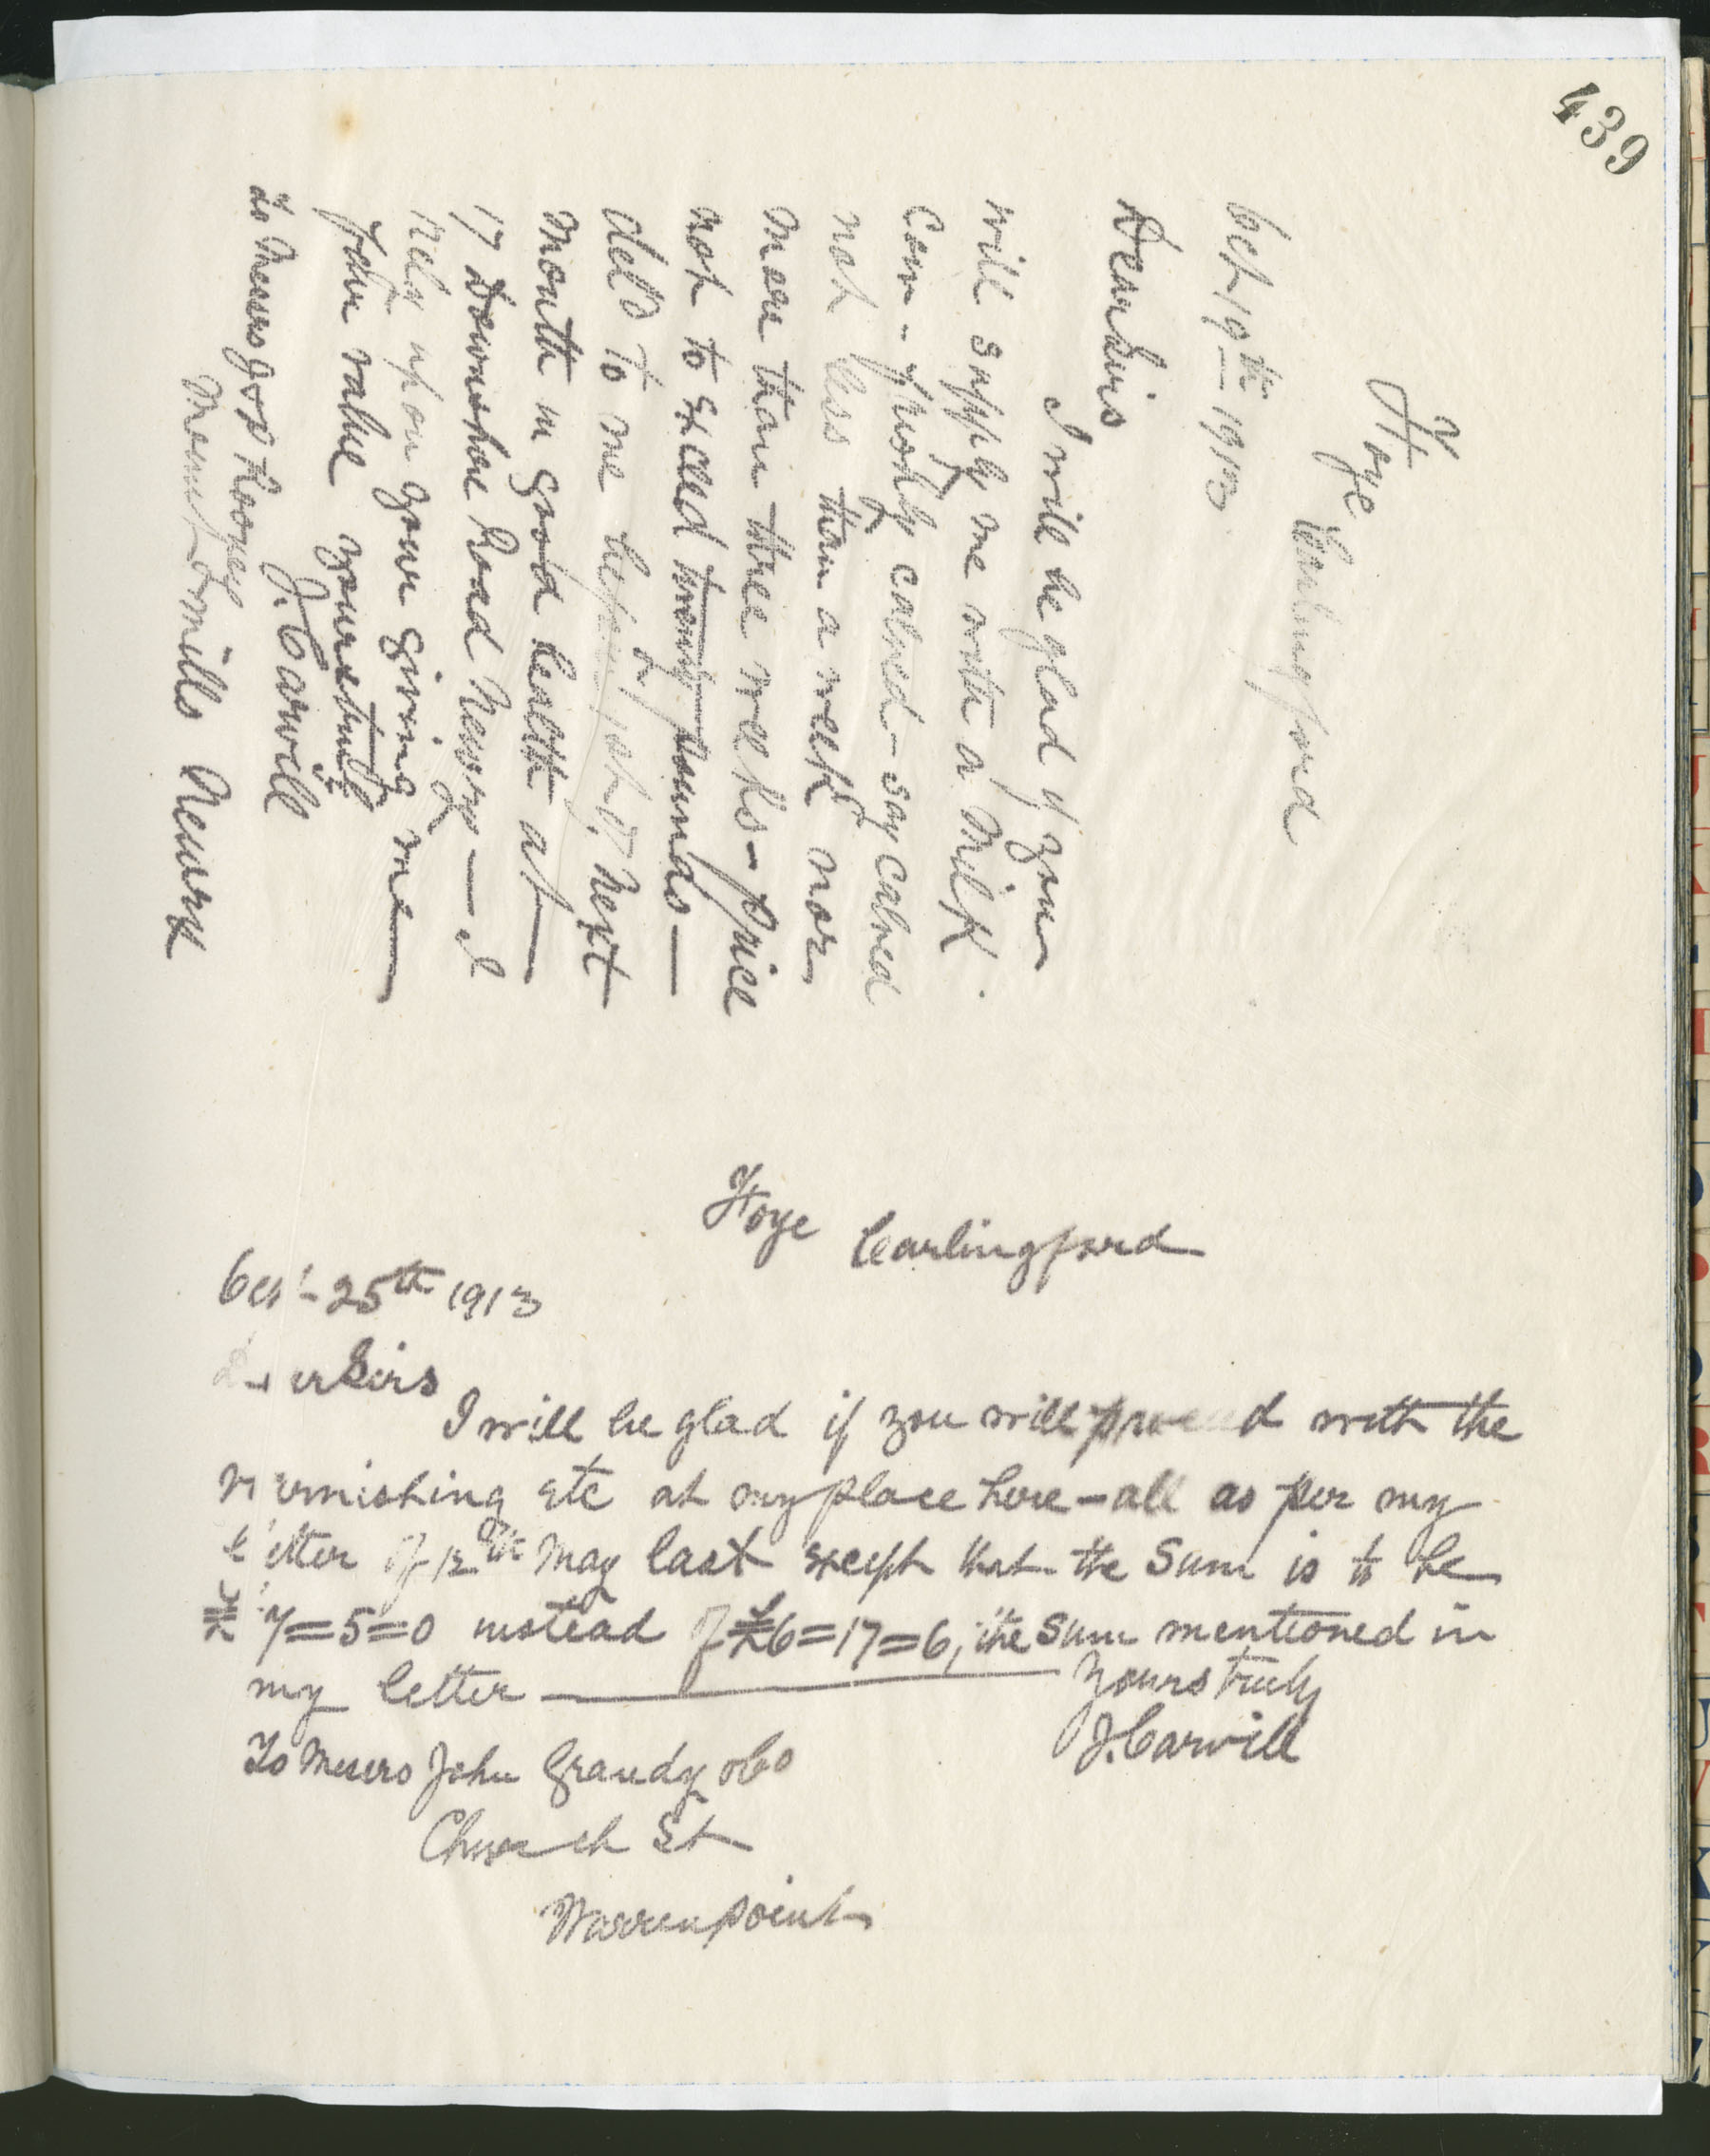 439
Foye
Carlingford
Oct 19th 1913
Dear Sirs
I will be glad if you
will supply me with a Milk
Cow - freshly calved - say calved
not less than a week nor
more than three weeks - price
not to exceed twenty pounds -
deld to me before 1st of next
month in good health at
17 Downshire Road Newry - I
rely upon your giving me
fair value yours truly
J. Carvill
To Messrs Jos
Mills Newry
Foye Carlingford
Oct 25th 1913
Dear Sirs
I will be glad if you will proceed with the
varnishing etc at my place here - all as per my
letter of 12th May last except that the Sum is to be
£7=5=0 instead of £6=17=6, the Sum mentioned in
my letter
Yours truly
J. Carvill
To Messrs John Grandy & Co
Church St
Warrenpoint